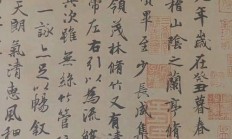 九年歲在癸丑暮春
稽山陰之蘭亭脩
畢至少長咸集
領茂林脩竹又有清
帶左右引以為流
其次雖無絲竹管
一詠亦足以暢敘
天朗氣清惠風和